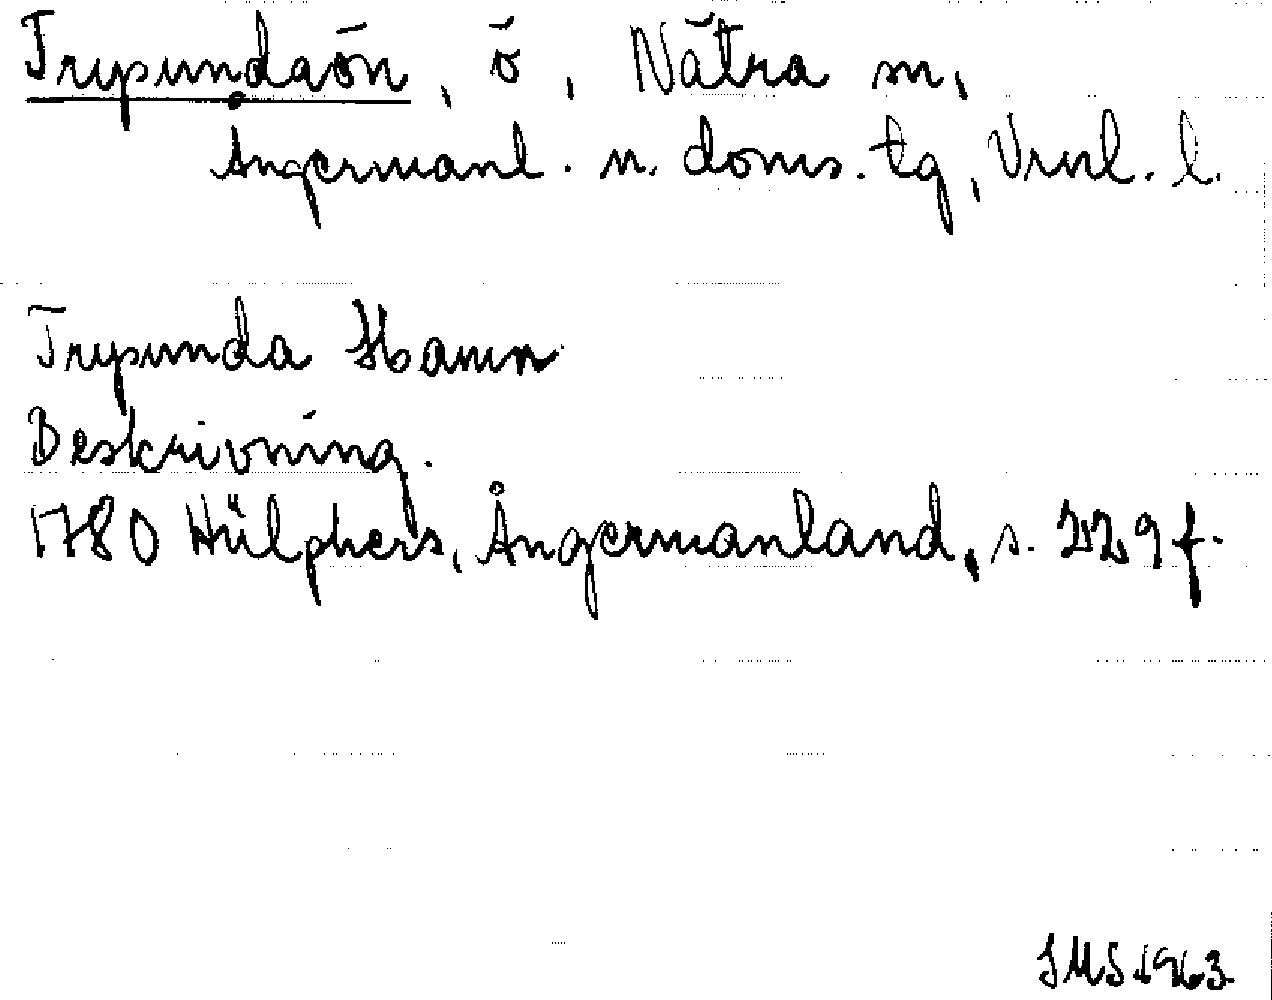 Trysundaön, ö, Nätra sn,
Ångermanl. n. doms. tg, Vrnl. l.
Trysunda Hamn
Beskrivning.
1780 Hülphers, Ångermanland, s. 229 f.
JMS 1963.